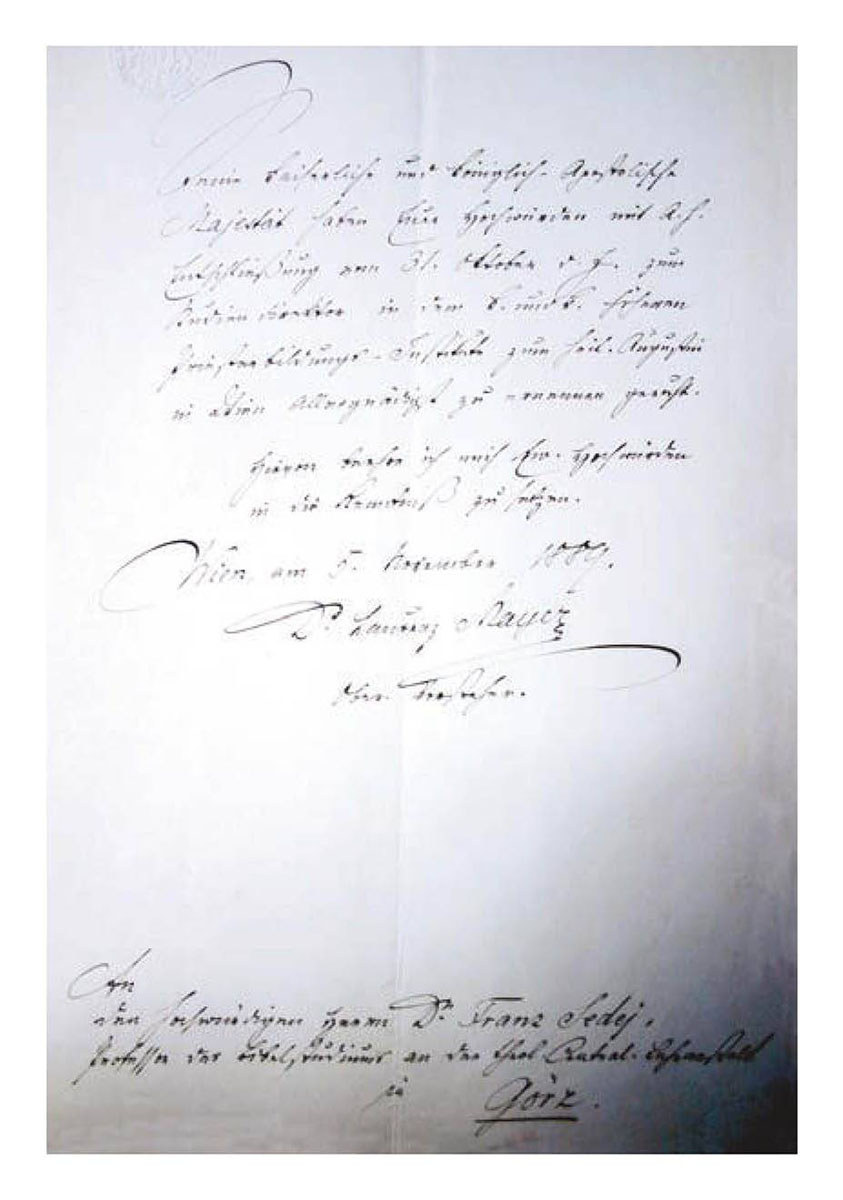 Seine kaiserliche und königlich-Apostolische
Majestät haben Eure Hochwürden mit A.h.
Entschließung vom 31. Oktober d. J. zum
Studiendirektor in dem k. und k. höheren
Priesterbildungs-Institute zum heil. Augustin
in Wien Allergnädigst zu ernennen geruht.
Hievon beehre ich mich Ew. Hochwürden
in die Kenntniß zu setzen.
Wien, am 5. November 1889.
Dr. Laurenz Mayer
Ober-Vorsteher.
An
den hochwürdigen Herrn Dr. Franz Sedej,
Professor des Bibelstudiums an der theol. Central-Lehranstalt
zu
Görz.